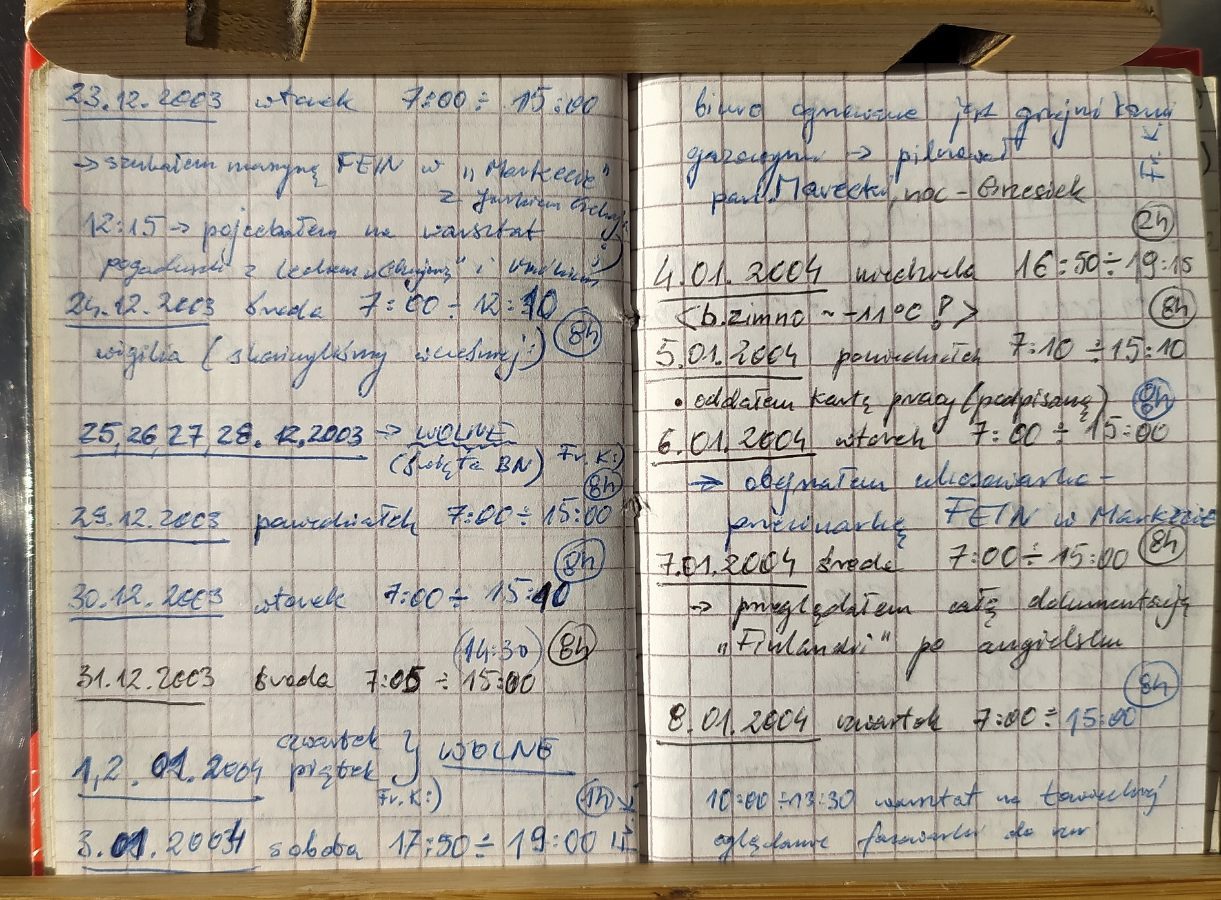 23.12.2003 wtorek 7:00 ÷ 15:00
→ szukałem maszynę FEIN w „Markecie"
z
12:15 → pojechałem na warsztat
pogaduszki z i
24.12.2003 środa 7:00 ÷ 12:10
8h
wigilia (skończyliśmy wcześniej:)
25, 26, 27, 28. 12.2003 → WOLNE
(święta BN) Fr. K:)
8h
29.12.2003 poniedziałek 7:00 ÷ 15:00
8h
30.12.2003 wtorek 7:00 ÷ 15:10
(14:30) 8h
31.12.2003 środa 7:05 ÷ 15:00
czwartek
1,2. 01. 2004 piątek } WOLNE
Fr. K:)
1h
3.01.2004 sobota 17:50 ÷ 19:00
biuro ogrzewane jest grzejnikami
gazowymi → pilnował
pan Marecki, noc - Grzesiek
Fr. K.
2h
4.01.2004 niedziela 16:50 ÷ 19:15
<b. zimno ~ -11°C !> 8h
5.01.2004 poniedziałek 7:10 ÷ 15:10
• oddałem kartę pracy (podpisaną) 8h
6.01.2004 wtorek 7:00 ÷ 15:00
→ obejrzałem ukosowarkę -
FEIN w Markecie
7.01.2004 środa 7:00 ÷ 15:00 8h
→ przeglądałem całą dokumentację
„Finlandii" po angielsku
8h
8.01.2004 czwartek 7:00 ÷ 15:00
10:00 ÷ 13:30 warsztat na
oglądanie do rur